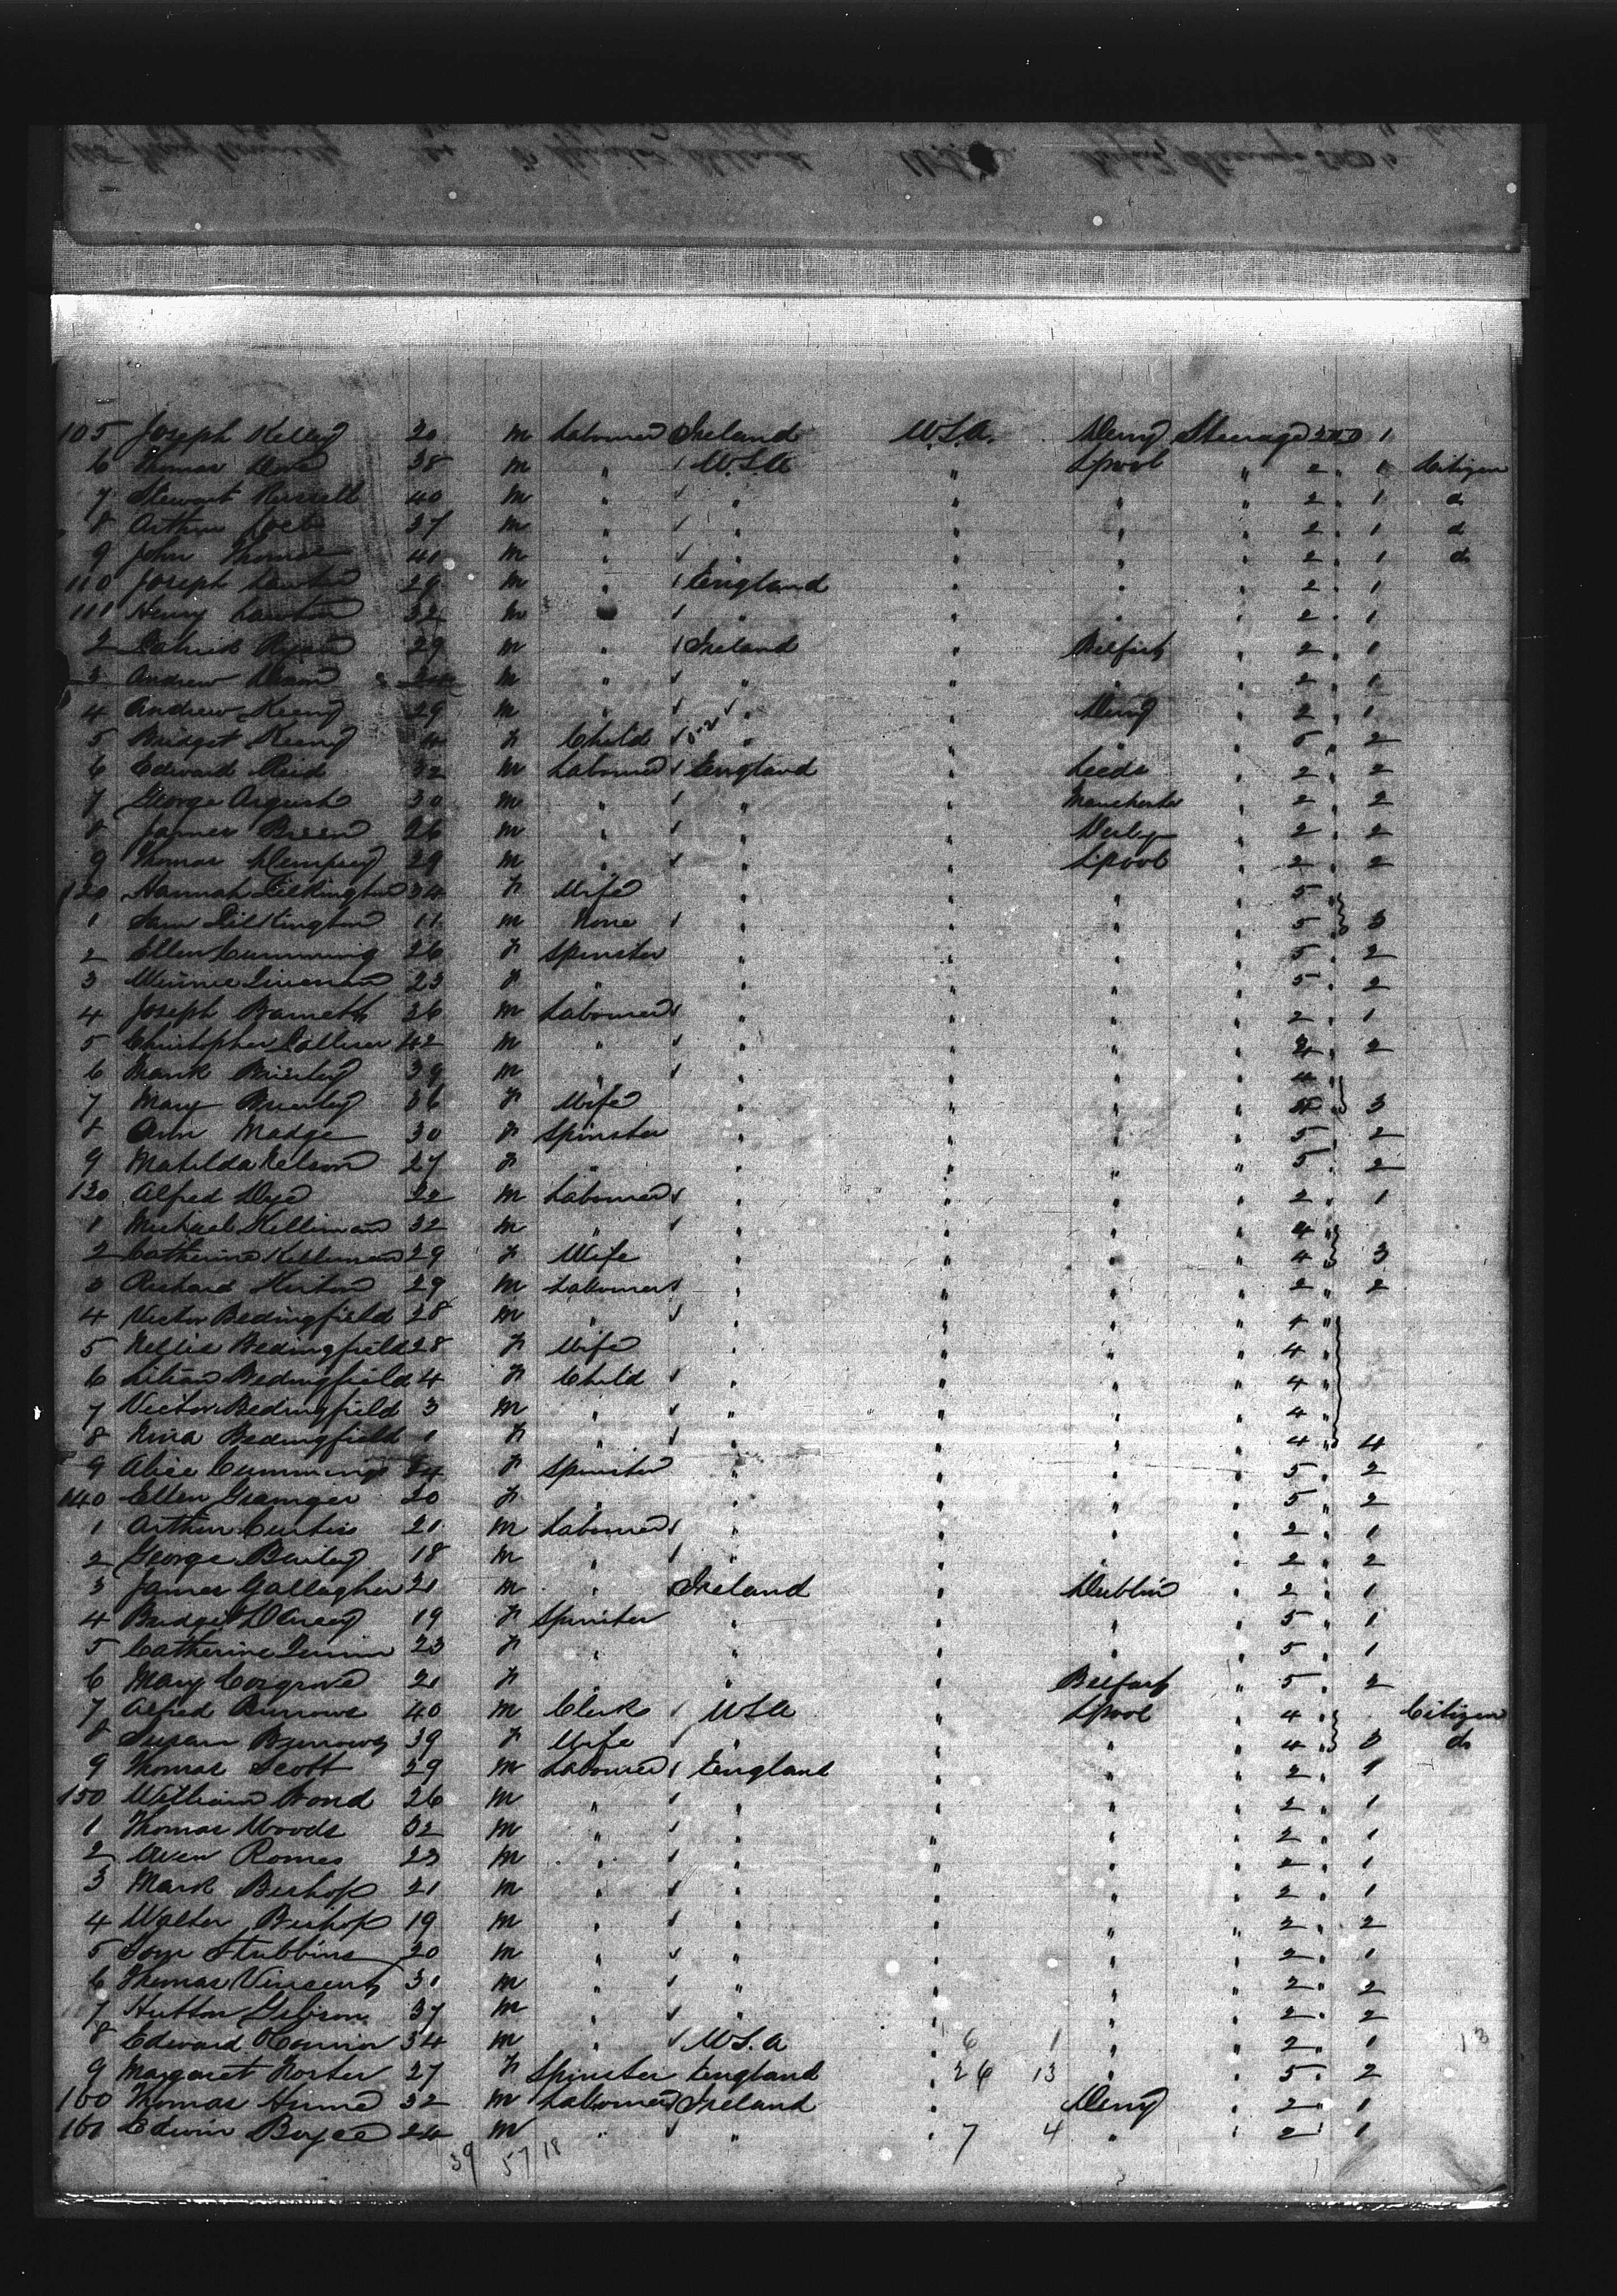 105 Joseph Kelley 20 m Labourer Ireland U.S.A. Derry Steerage 2 1
6 Thomas 38 m " U.S.A " L'pool " 2 " 1 Citizen
7 Stewart Russell 40 m " " " " " 2 " 1 d
8 Arthur 27 m " " " " " 2 " 1 d
9 John Thomas 41 m " " " " " 2 " 1 do
110 Joseph Lawton 29 m " England " " " 2 " 1
111 Henry Lawton 32 m " " " " 2 " 1
2 Patrick Ryan 29 m " Ireland " Belfast " 2 " 1
3 Andrew m " " " " " 2 " 1
4 Andrew Keeny 29 m " " " Derry " 2 " 1
5 Bridget Keeny 4 F Child " " " " 5 " 2
6 Edward Reid 32 m Labourer England " Leeds " 2 " 2
7 George 30 m " " " Manchester " 2 " 2
8 James Breen 26 m " " " Derby " 2 " 2
9 Thomas Dempsey 29 m " " " L'pool " 2 " 2
120 Hannah Pilkington 34 F Wife " " " " 5 "
1 Sam Pilkington 11 m None " " " " 5 " 3
2 Ellen Cumming 26 F Spinster " " " " 5 " 2
3 Winnie 23 F " " " " " 5 " 2
4 Joseph Barnett 36 m Labourer " " " " 2 " 1
5 Christopher 42 m " " " " " 2 " 2
6 Frank Brierley 39 m " " " " " 4
7 Mary Brierley 36 F Wife " " " " 4 3
8 Ann Madge 30 F Spinster " " " " 5 " 2
9 Matilda Nelson 27 F " " " " " 5 " 2
130 Alfred Dye 22 m Labourer " " " " 2 " 1
1 Michael Kelliman 32 m " " " " " 4 "
2 Catherine Kelliman 29 F Wife " " " " 4 3
3 Richard 29 m Labourer " " " " 2 " 2
4 Victor Bedingfield 28 m " " " " " 4 "
5 Nellie Bedingfield 28 F Wife " " " " 4 "
6 Lilian Bedingfield 4 F Child " " " " 4 "
7 Victor Bedingfield 3 m " " " " " 4 "
8 Nina Bedingfield 1 F " " " " " 4 " 4
9 Alice Cummings 24 F Spinster " " " " 5 " 2
140 Ellen Grainger 20 F " " " " " 5 " 2
1 Arthur Curtis 21 m Labourer " " " " 2 " 1
2 George Bailey 18 m " " " " " 2 " 2
3 James Gallagher 21 m " Ireland " Dublin " 2 " 1
4 Bridget 19 F Spinster " " " " 5 " 1
5 Catherine 23 F " " " " " 5 " 1
6 Mary Cosgrove 21 F " " " Belfast " 5 " 2
7 Alfred Burrows 40 m Clerk U.S.A " L'pool " 4 " Citizen
8 Susan Burrows 39 F Wife " " " " 4 3 do
9 Thomas Scott 29 m Labourer England " " " 2 " 1
150 William Wond 26 m " " " " " 2 " 1
1 Thomas Woods 32 m " " " " " 2 " 1
2 Owen Romes 23 m " " " " " 2 " 1
3 Mark Bishop 21 m " " " " " 2 " 1
4 Walter Bishop 19 m " " " " " 2 " 2
5 Tom Stubbins 20 m " " " " " 2 " 1
6 Thomas Vincent 31 m " " " " " 2 " 2
7 Hutton Gibson 37 m " " " " " 2 " 2
8 Edward O'Connor 34 m " U.S.A 6 1 " " 2 " 1 13
9 Margaret Norter 27 F Spinster England " 26 13 " " 5 " 2
160 Thomas Hume 32 m Labourer Ireland " Derry " 2 " 1
161 Edwin Boyce 24 m " " " 7 4 " " 2 " 1
39 57 18